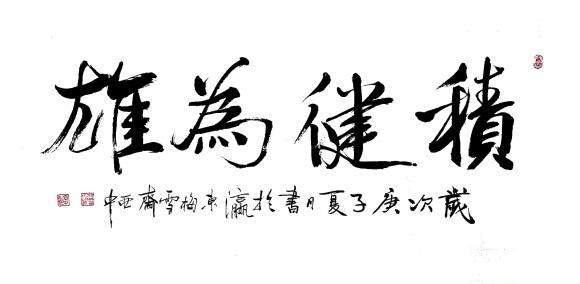 積健為雄
歲次庚子夏月書於瀛東梅雪齋亞中